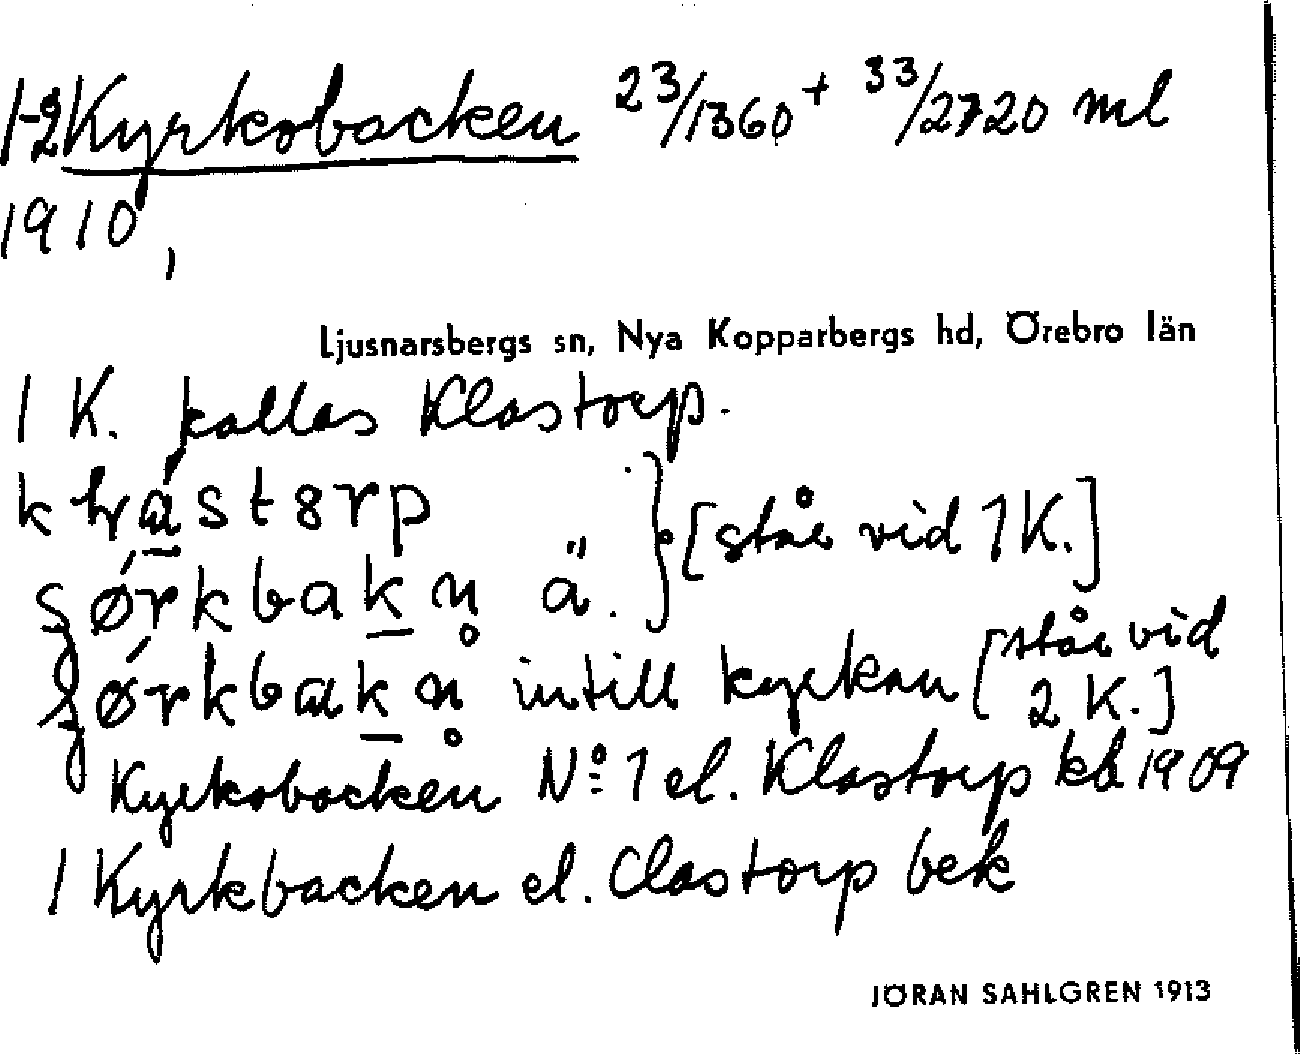 1-2 Kyrkobacken 23/1360 + 33/2720 ml
1910,
Ljusnarsbergs sn, Nya Kopparbergs hd, Örebro län
1 K. kallas Klastorp.
[står vid 1 K.]
ä.
intill kyrkan [står vid 2 K.]
Kyrkobacken No 1 el. Klastorp kb 1909
1 Kyrkbacken el. Clastorp bek
JÖRAN SAHLGREN 1913